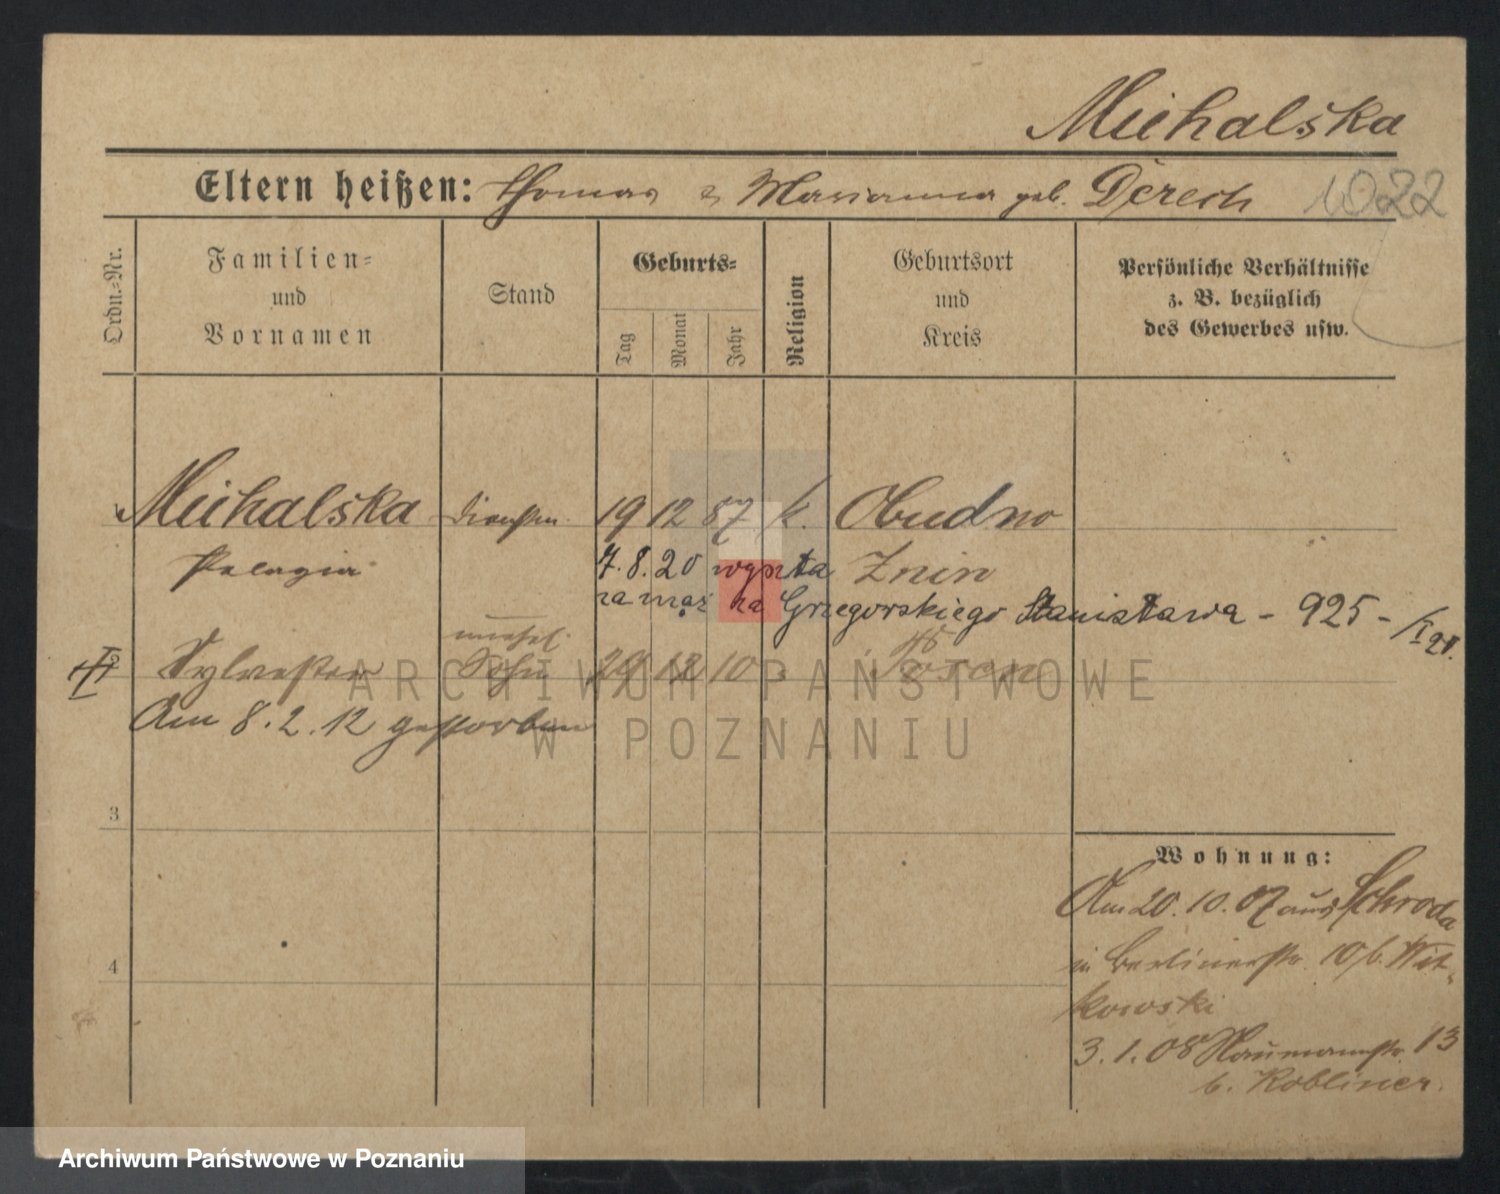 Michalska
Eltern heißen: Thomas u Marianna geb. Derech 1022
Ordn.-Nr.
Familien-
und
Vornamen
Stand
Geburts-
Tag
Monat
Jahr
Religion
Geburtsort
und
Kreis
Persönliche Verhältnisse
z. B. bezüglich
des Gewerbes usw.
Michalska 19 12 87 k. Obudno
Pelagia 7.8.20 wyszła Znin
za mąż za Grzegorskiego Stanisława - 925 -
unehel.
2 Sylvester Sohn 29 12 10 Posen
Am 8.2.12 gestorben
3
4
Wohnung:
Am 20.10.07 aus Schroda
in Berlinerstr. 10 b. Wit-
kowski
3.1.08 Naumannstr. 13
b. Kobliner.
ARCHIWUM PAŃSTWOWE
W POZNANIU
Archiwum Państwowe w Poznaniu